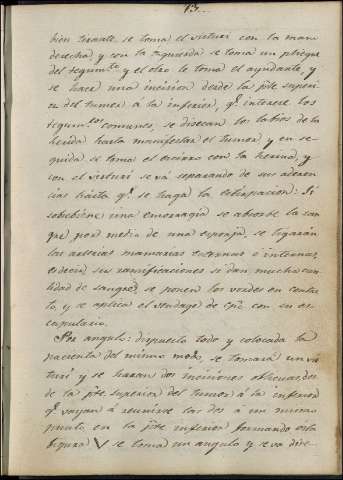 13...
bien tirante, se toma el visturi con la mano
derecha y con la izquierda se toma un pliegue
del tegum.to y el otro le toma el ayudante, y
se hace una incision desde la p.te superi-
or del tumor à la inferior, q.e interese los
tegum.tos comunes, se disecan los labios de la
herida hasta manifestar el tumor y en se-
guida se toma el escirro con la herina, y
con el visturi se vá separando de sus aderen-
cias hasta q.e se haga la extirpacion: Si
sobebiene una emorragia se absorbe la san-
gre por medio de una esponja, se ligarán
las arterias mamarias externas o internas,
es decir, sus ramificaciones si dan mucha can-
tidad de sangre, se ponen los vordes en contac-
to, y se aplica el vendage de cpō con su es-
capulario.
Por angulo: dispuesto todo y colocada la
pacienta del mismo modo, se tomará un vis-
turi y se haran dos incisiones obliquas des-
de la p.te superior del tumor á la inferior
q.e vayan á reunirse las dos á un mismo
punto en la p.te inferior formando esta
figura V se toma un angulo y se va dise-